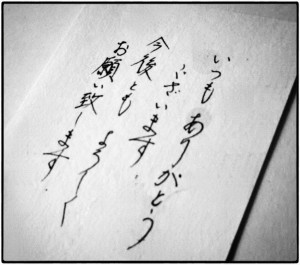 いつもありがとう
ございます。
今後ともよろしく
お願い致します。